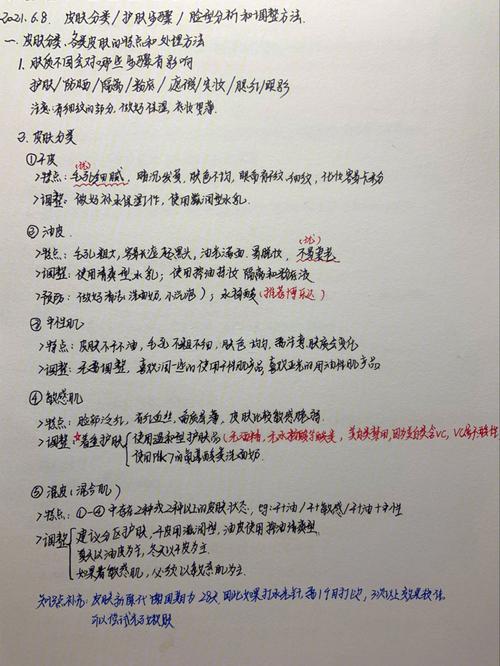 2021.6.8. 皮肤分类/护肤步骤/脸型分析和调整方法.
一. 皮肤分类、各类皮肤的特点和处理方法
1. 肤质不同会对哪些步骤有影响
护肤/防晒/隔离/粉底/遮瑕/定妆/腮红/眼影
注意: 有细纹的部分, 做好保湿, 底妆要薄.
2. 皮肤分类
①干皮
>特点: 毛孔细腻(优), 暗沉发黄, 肤色不均, 眼带有干纹、细纹, 化妆容易卡粉
>调整: 做好补水保湿工作, 使用滋润型水乳.
②油皮
>特点: 毛孔粗大, 容易长痘、黑头, 油光满面. 易脱妆, 不易衰老(优)
>调整: 使用清爽型水乳; 使用控油持妆 隔离和粉底液
>预防: 做好清洁(洗面奶、小泡泡); 水杨酸(推荐博乐达)
③中性肌
>特点: 皮肤不干不油, 毛孔不粗不细, 肤色均匀, 需注意肤质会变化
>调整: 无需调整, 喜欢润一些的使用干性肌产品, 喜欢亚光的用油性肌产品
④敏感肌
>特点: 脸部泛红, 有红血丝, 角质层薄, 皮肤比较敏感脆弱.
>调整: *着重护肤 使用温和型护肤品(无酒精, 无水杨酸等酸类, 美白类禁用, 因为美白类含VC, VC属不稳定性
使用PH<7的氨基酸类洗面奶.
⑤混皮(混合肌)
>特点: ①-④中存在2种或2种以上的皮肤状态, eg: 干+油/干+敏感/干+油+中性
>调整 建议分区护肤, 干皮用滋润型, 油皮使用控油清爽型
夏天以油皮为主, 冬天以干皮为主.
如果有敏感肌, 必须以敏感肌为主.
知识点补充: 皮肤新陈代谢周期为28天, 因此如果打水光针, 需1个月打1次, 3次以上效果较佳.
可以尝试光子嫩肤